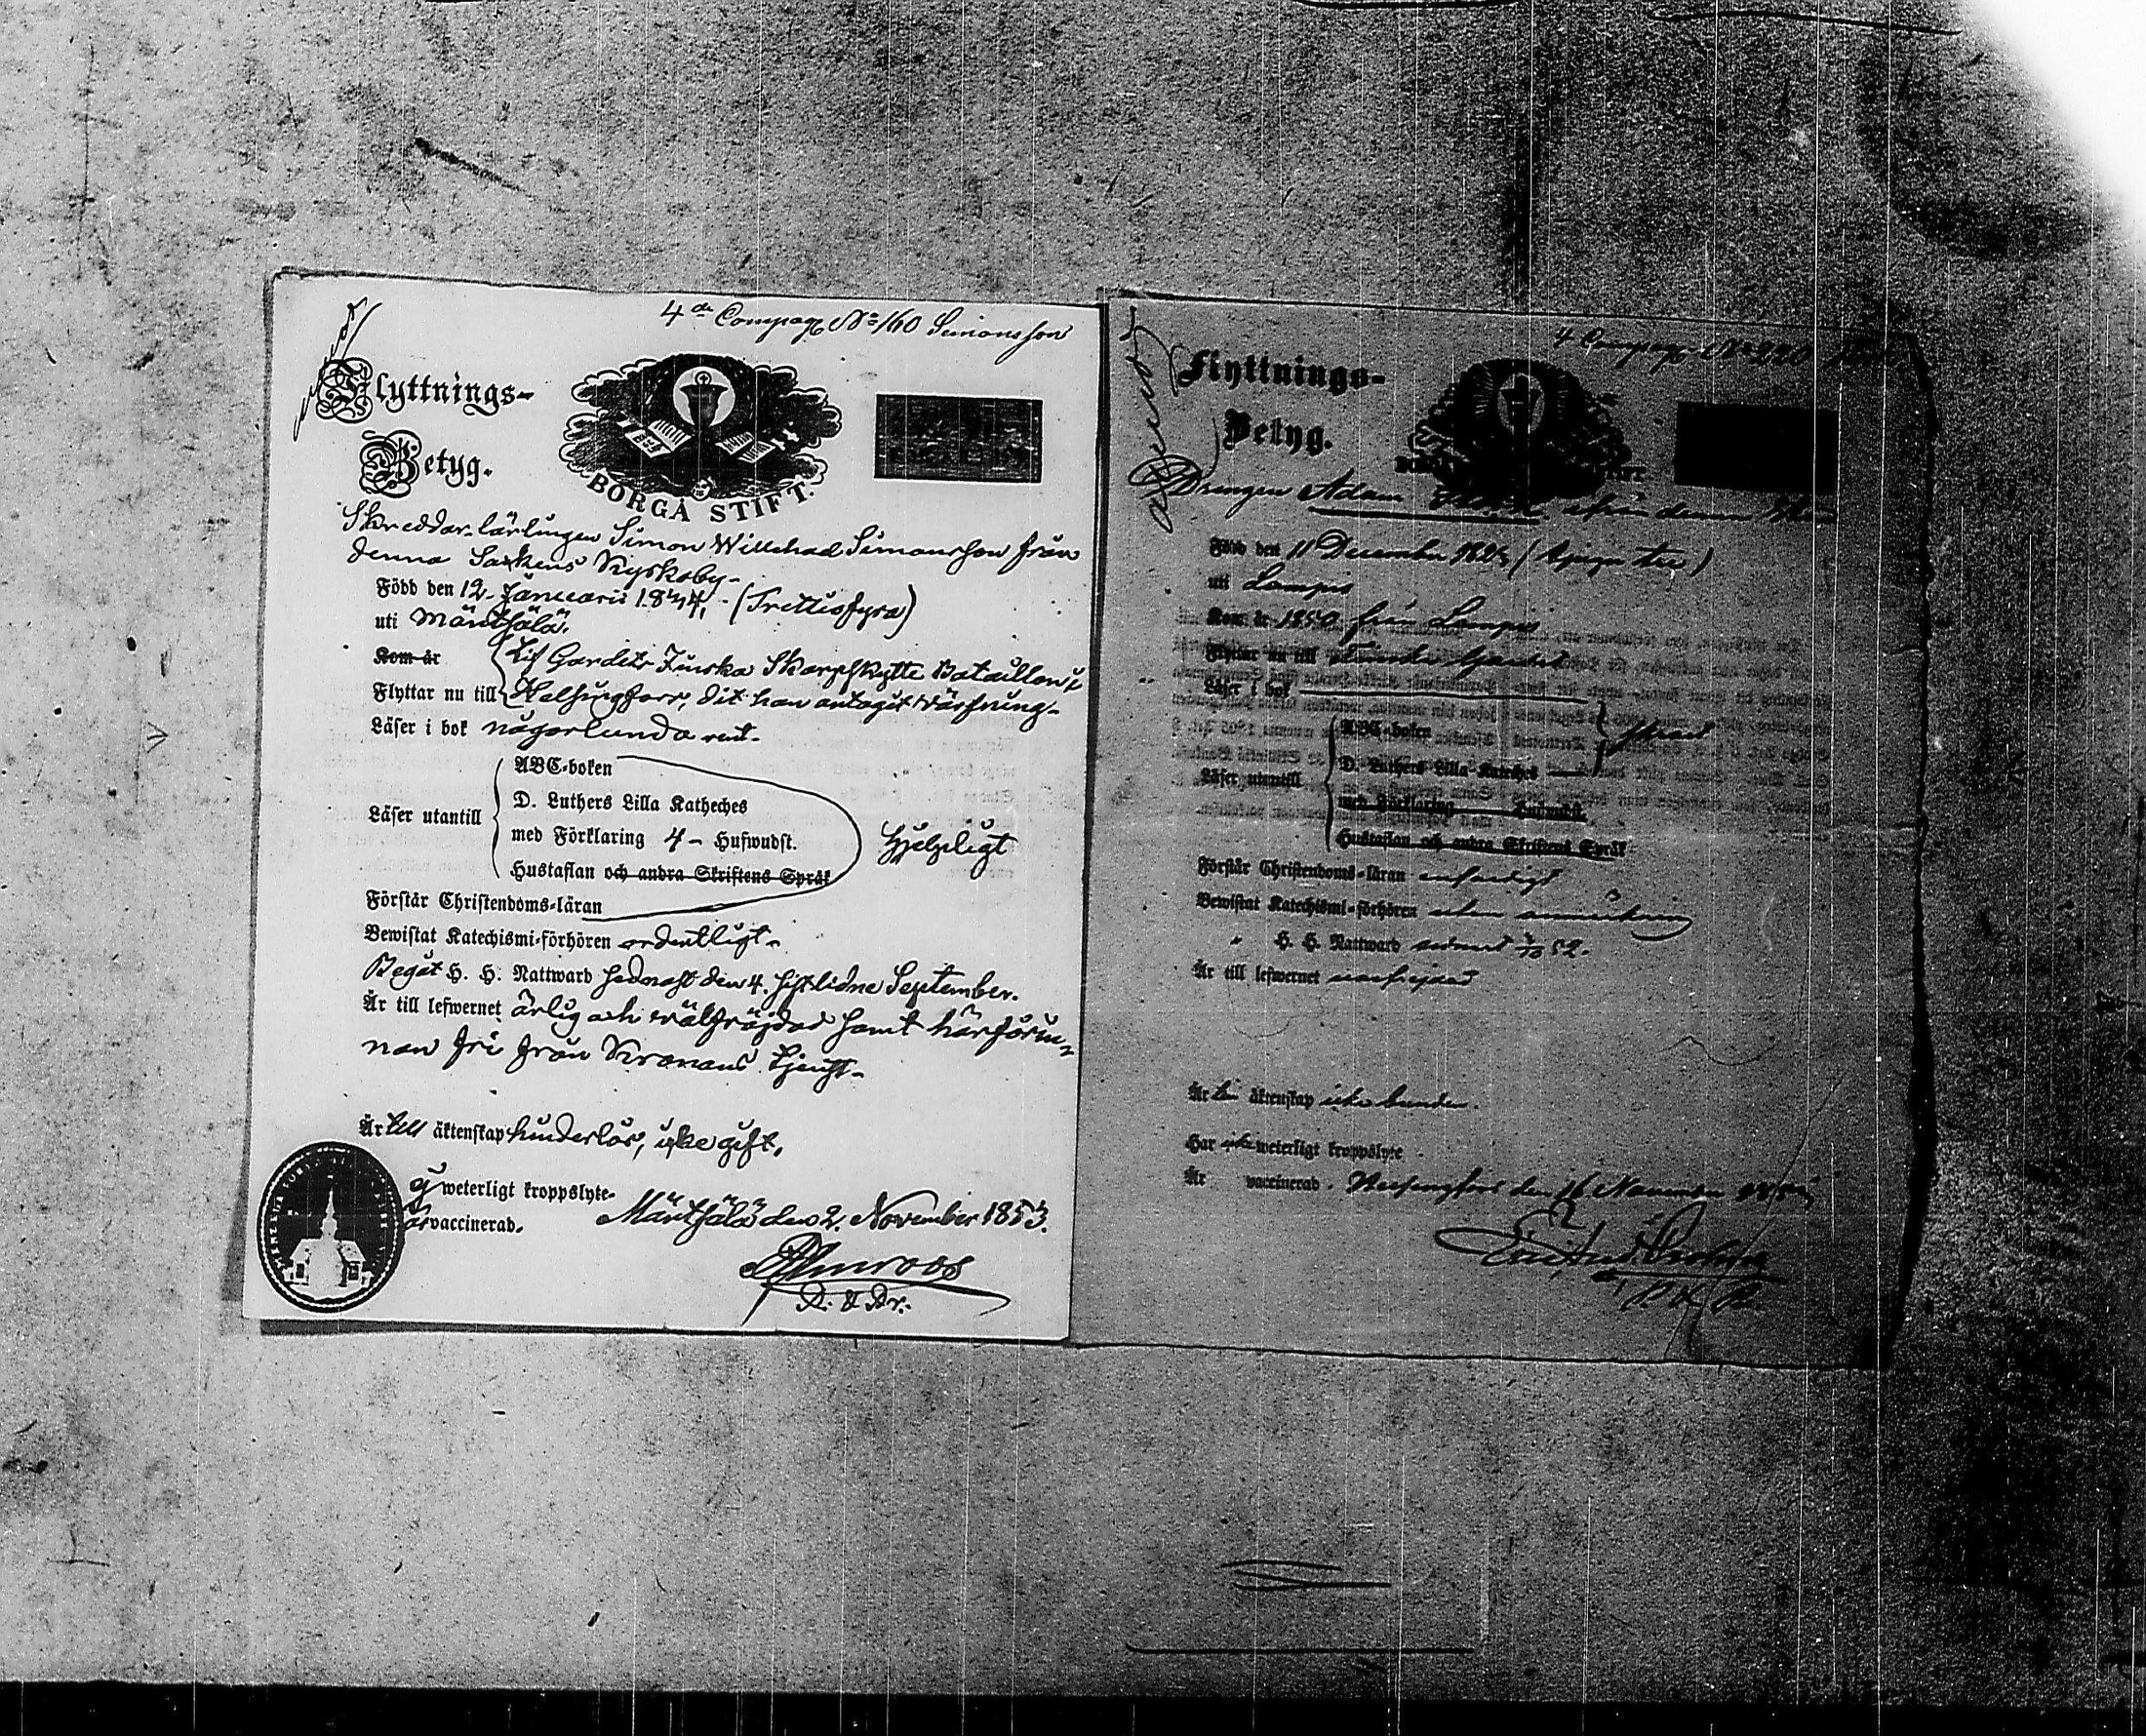 4de Compag. No 160 Simonsson
Flyttnings-
Betyg.
BORGÅ STIFT.
Skreddar-lärlingen Simon Willehad Simonsson från
denna Sockens Kyrkoby-
Född den 12 Januarii 1834, (Trettiofyra)
uti Mäntsälä.
Kom år
Lif Gardets Finska Skarpskytte Bataillon i
Flyttar nu till Helsingfors, dit han antagit värfning-
Läser i bok någorlunda rent-
ABC-boken
D. Luthers Lilla Katheches
Läser utantill
med Förklaring 4 - Hufwudst.
Hjelpligt
Hustaflan och andra Skriftens Språk
Förstår Christendoms-läran
Bewistat Katechismi-förhören ordentligt-
Begått H. H. Nattward sednast den 4. sistlidne September.
Är till lefwernet ärlig och välfräjdad samt härförin-
nan fri från Kronans tjenst-
Är till äktenskap hinderlös, icke gift.
ej weterligt kroppslyte-
är vaccinerad.
Mäntsälä den 2. November 1853.
4 Compag. No 220
Flyttnings-
Betyg.
Drengen Adam från denna
Född den 11 December 1823 (tjugu tre)
uti Lampis
Kom år 1850 från Lampis
Flyttar nu till Finska Gardet
Läser i bok
ABC-boken
D. Luthers Lilla Katheches
Läser utantill
med Förklaring Hufwudst.
Hustaflan och andra Skriftens Språk
Förstår Christendoms-läran enfaldigt
Bewistat Katechismi-förhören utan anmärkning
" H. H. Nattward 52.
Är till lefwernet
Är till äktenskap icke bunden.
Har icke weterligt kroppslyte
Är vaccinerad. Helsingfors den 16 November